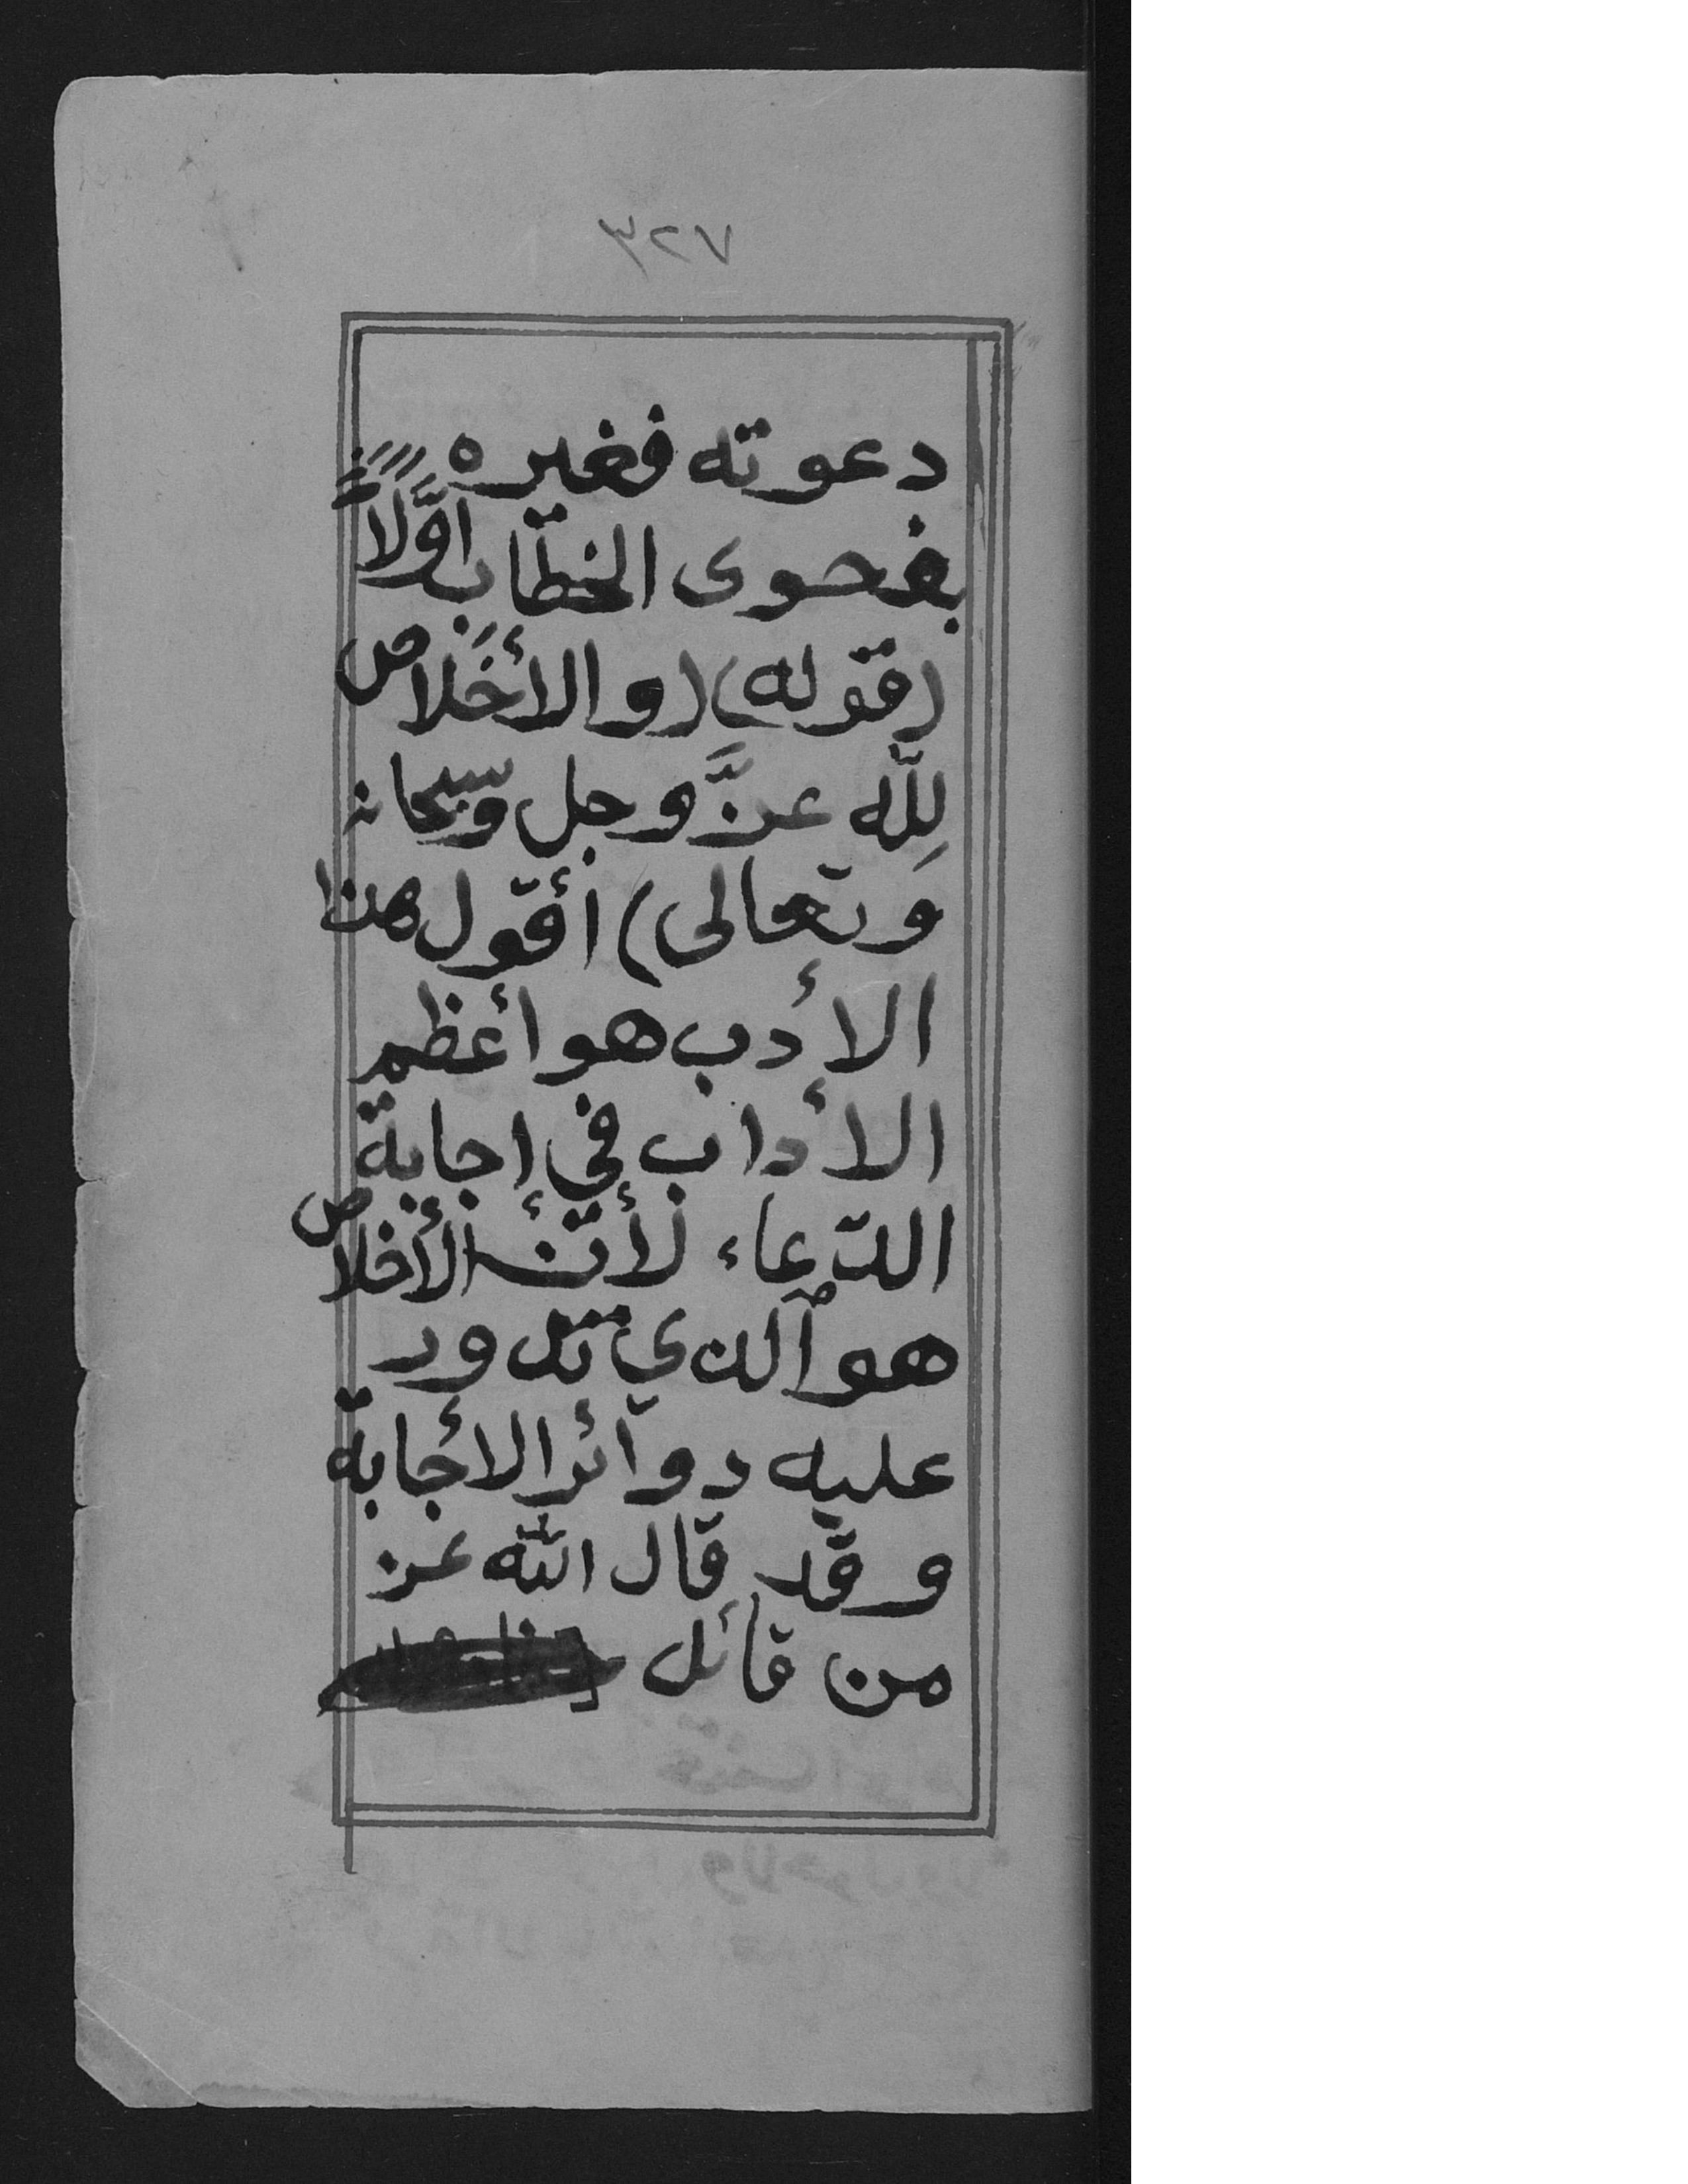 ٧٢٣
دعوته فغيره
بفحوى الخطاب اوّلاً
(قوله) (والأخلاص
لِلّه عزَّ وجل وسبحانه
وتعالى) أقول هذا
الأدب هو أعظم
الأداب في إجابة
الدّعاء لأنّ الأخلاص
هو الذي تدور
عليه دوائر الأجابة
وقد قال اللّه عز
من قائل